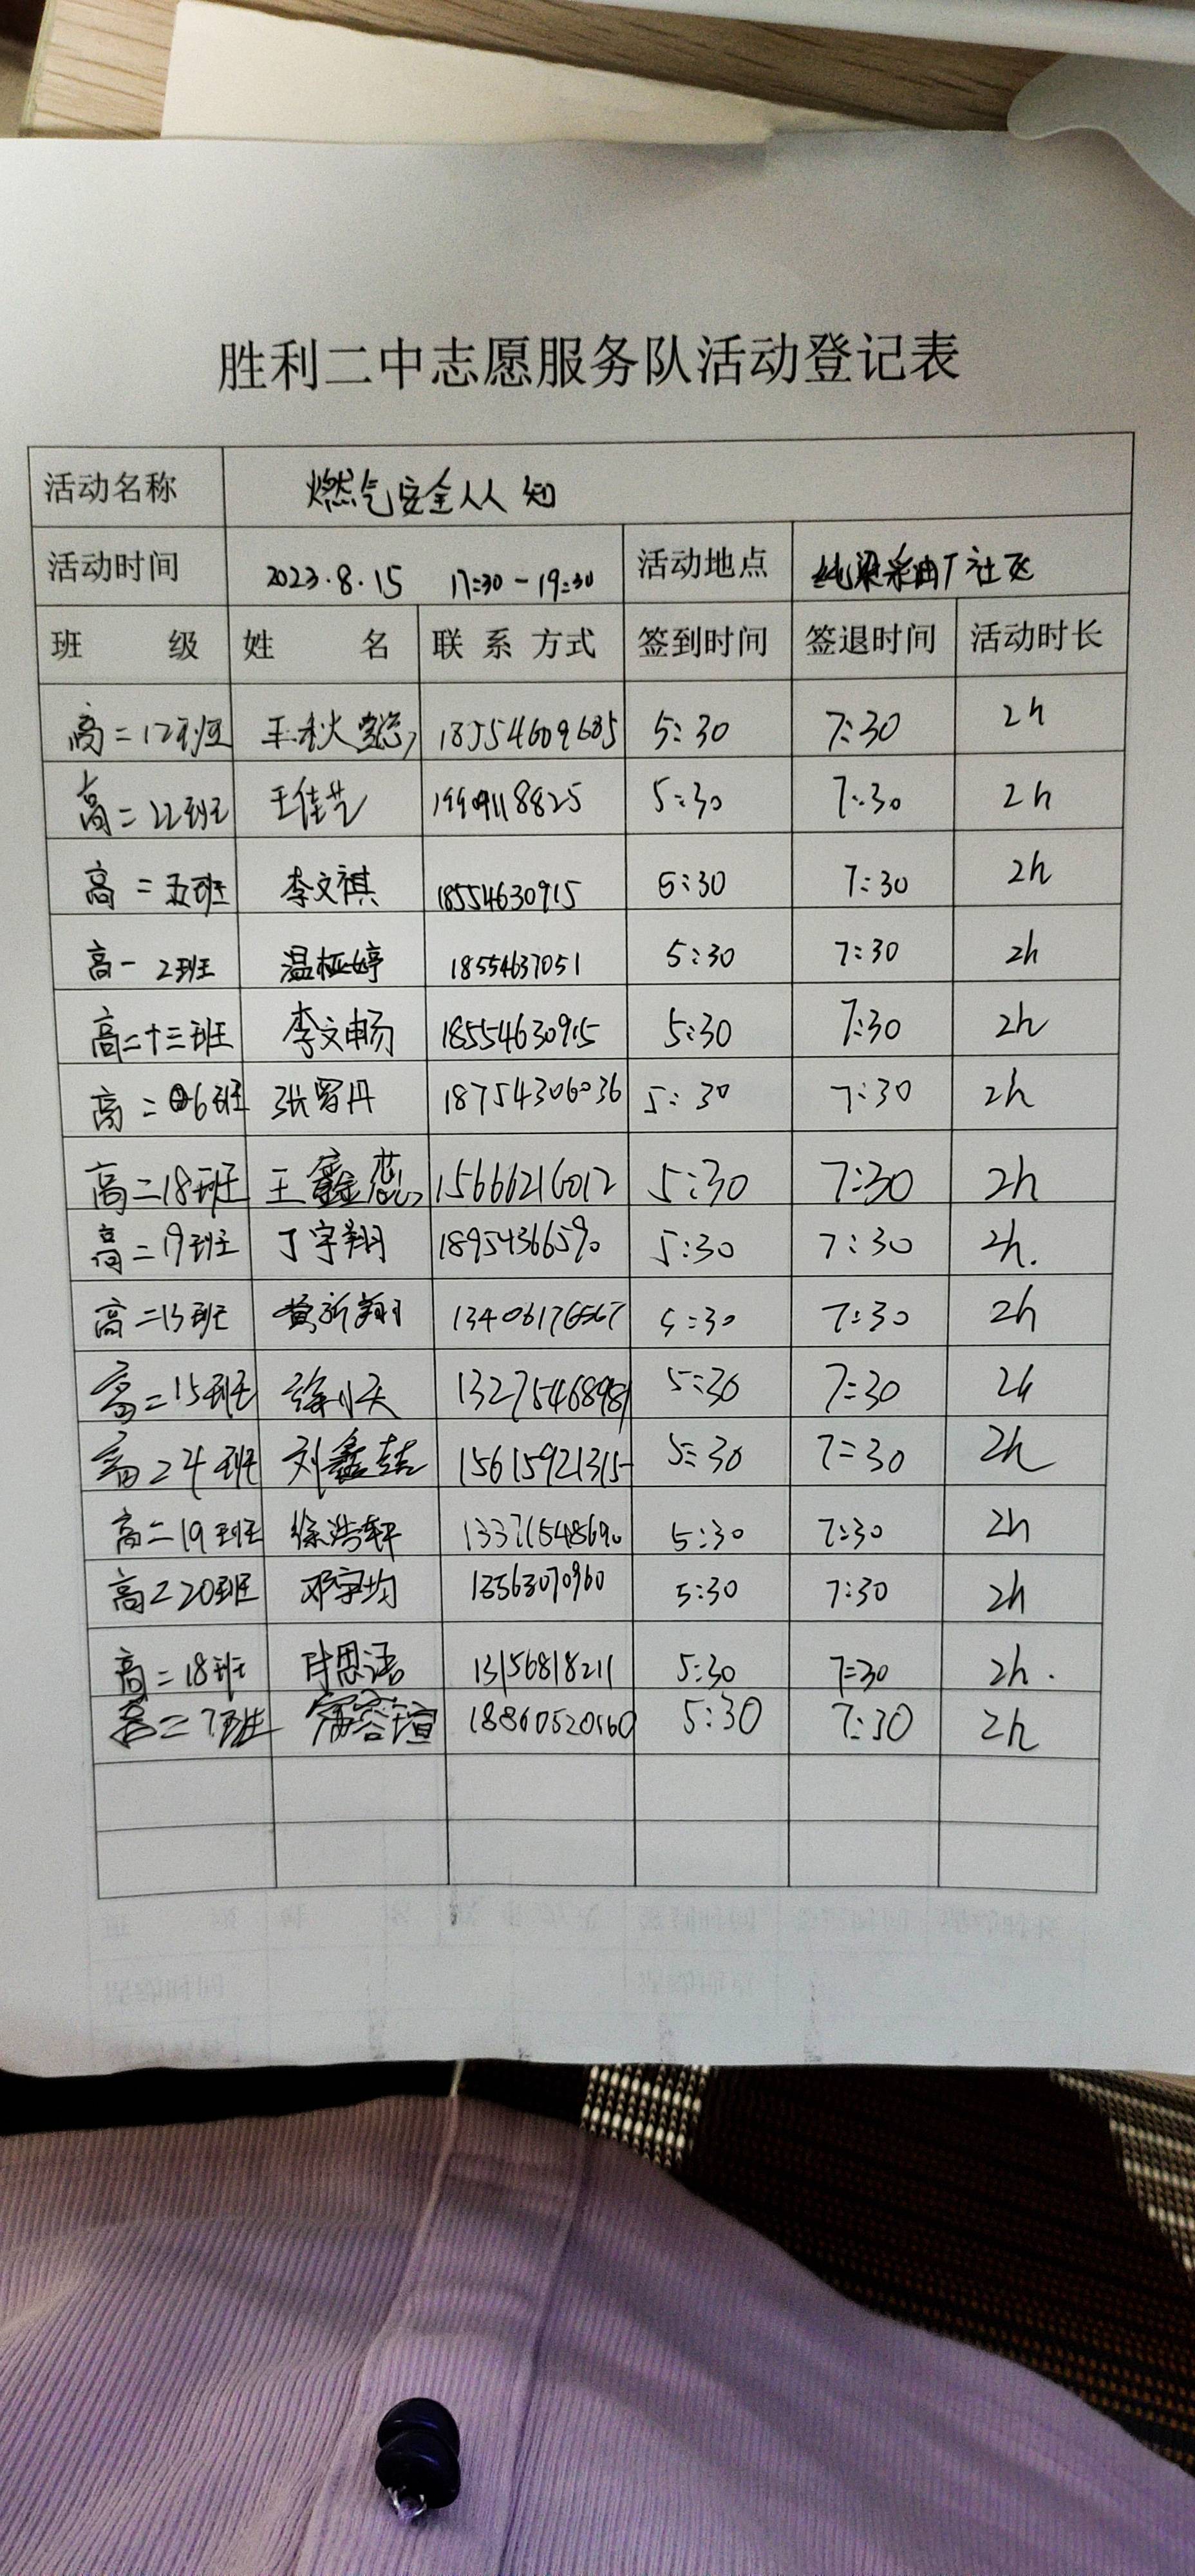 胜利二中志愿服务队活动登记表
活动名称 燃气安全人人知
活动时间 2023.8.15 17:30-19:30 活动地点 纯梁采油厂社区
班 级 姓 名 联系方式 签到时间 签退时间 活动时长
高二12班 王秋懿 18554609685 5:30 7:30 2h
高二22班 王佳艺 1990118825 5:30 7:30 2h
高二五班 李文祺 18554630915 5:30 7:30 2h
高一2班 温桠婷 18554637051 5:30 7:30 2h
高二十三班 李文畅 18554630915 5:30 7:30 2h
高二6班 张罗丹 18754306036 5:30 7:30 2h
高二18班 王鑫蕊 15666216012 5:30 7:30 2h
高二19班 丁宇翔 18954366590 5:30 7:30 2h.
高二13班 黄新翔 13406176567 5:30 7:30 2h
高二15班 徐小天 13275468981 5:30 7:30 2h
高二4班 刘鑫喆 15615921315 5:30 7:30 2h
高二19班 徐浩轩 13371548690 5:30 7:30 2h
高二20班 邓宇均 13563070960 5:30 7:30 2h
高二18班 思语 13156818211 5:30 7:30 2h.
高二7班 容瑄 18860520160 5:30 7:30 2h